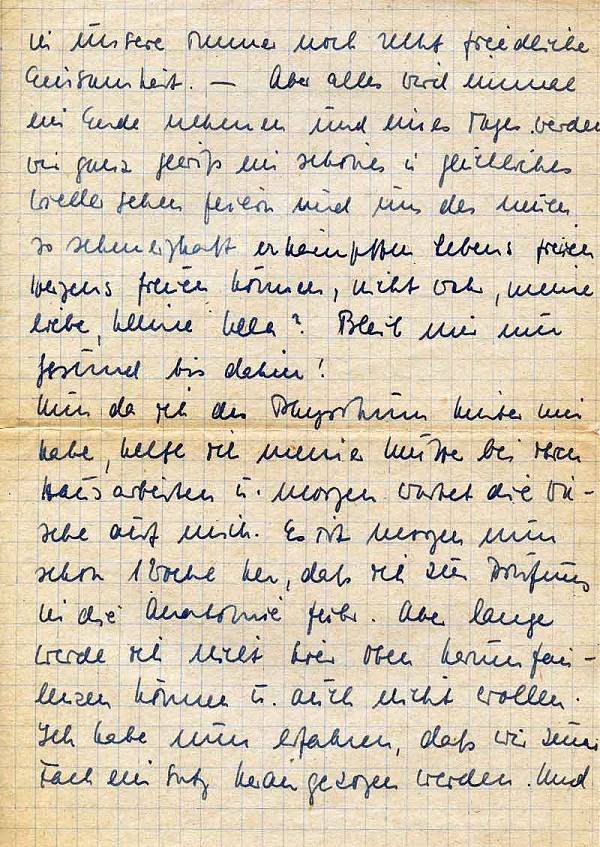 in unsere immer noch recht friedliche
Einsamkeit. — Aber alles wird einmal
ein Ende nehmen und eines Tages werden
wir ganz gewiß ein schönes u. glückliches
Wiedersehen feiern und uns des neuen
so schmerzhaft erkämpften Lebens freien
Herzens freuen können, nicht wahr, meine
liebe, kleine Hella? Bleib mir nur
gesund bis dahin!
Nun da ich das Physikum hinter mir
habe, helfe ich meiner Mutter bei ihren
Hausarbeiten u. morgen wartet die Wä-
sche auf mich. Es ist morgen nun
schon 1 Woche her, daß ich zur Prüfung
in die Anatomie fuhr. Aber lange
werde ich nicht hier oben herumfau-
lenzen können u. auch nicht wollen.
Ich habe nun erfahren, daß wir zum
herangezogen werden. Und